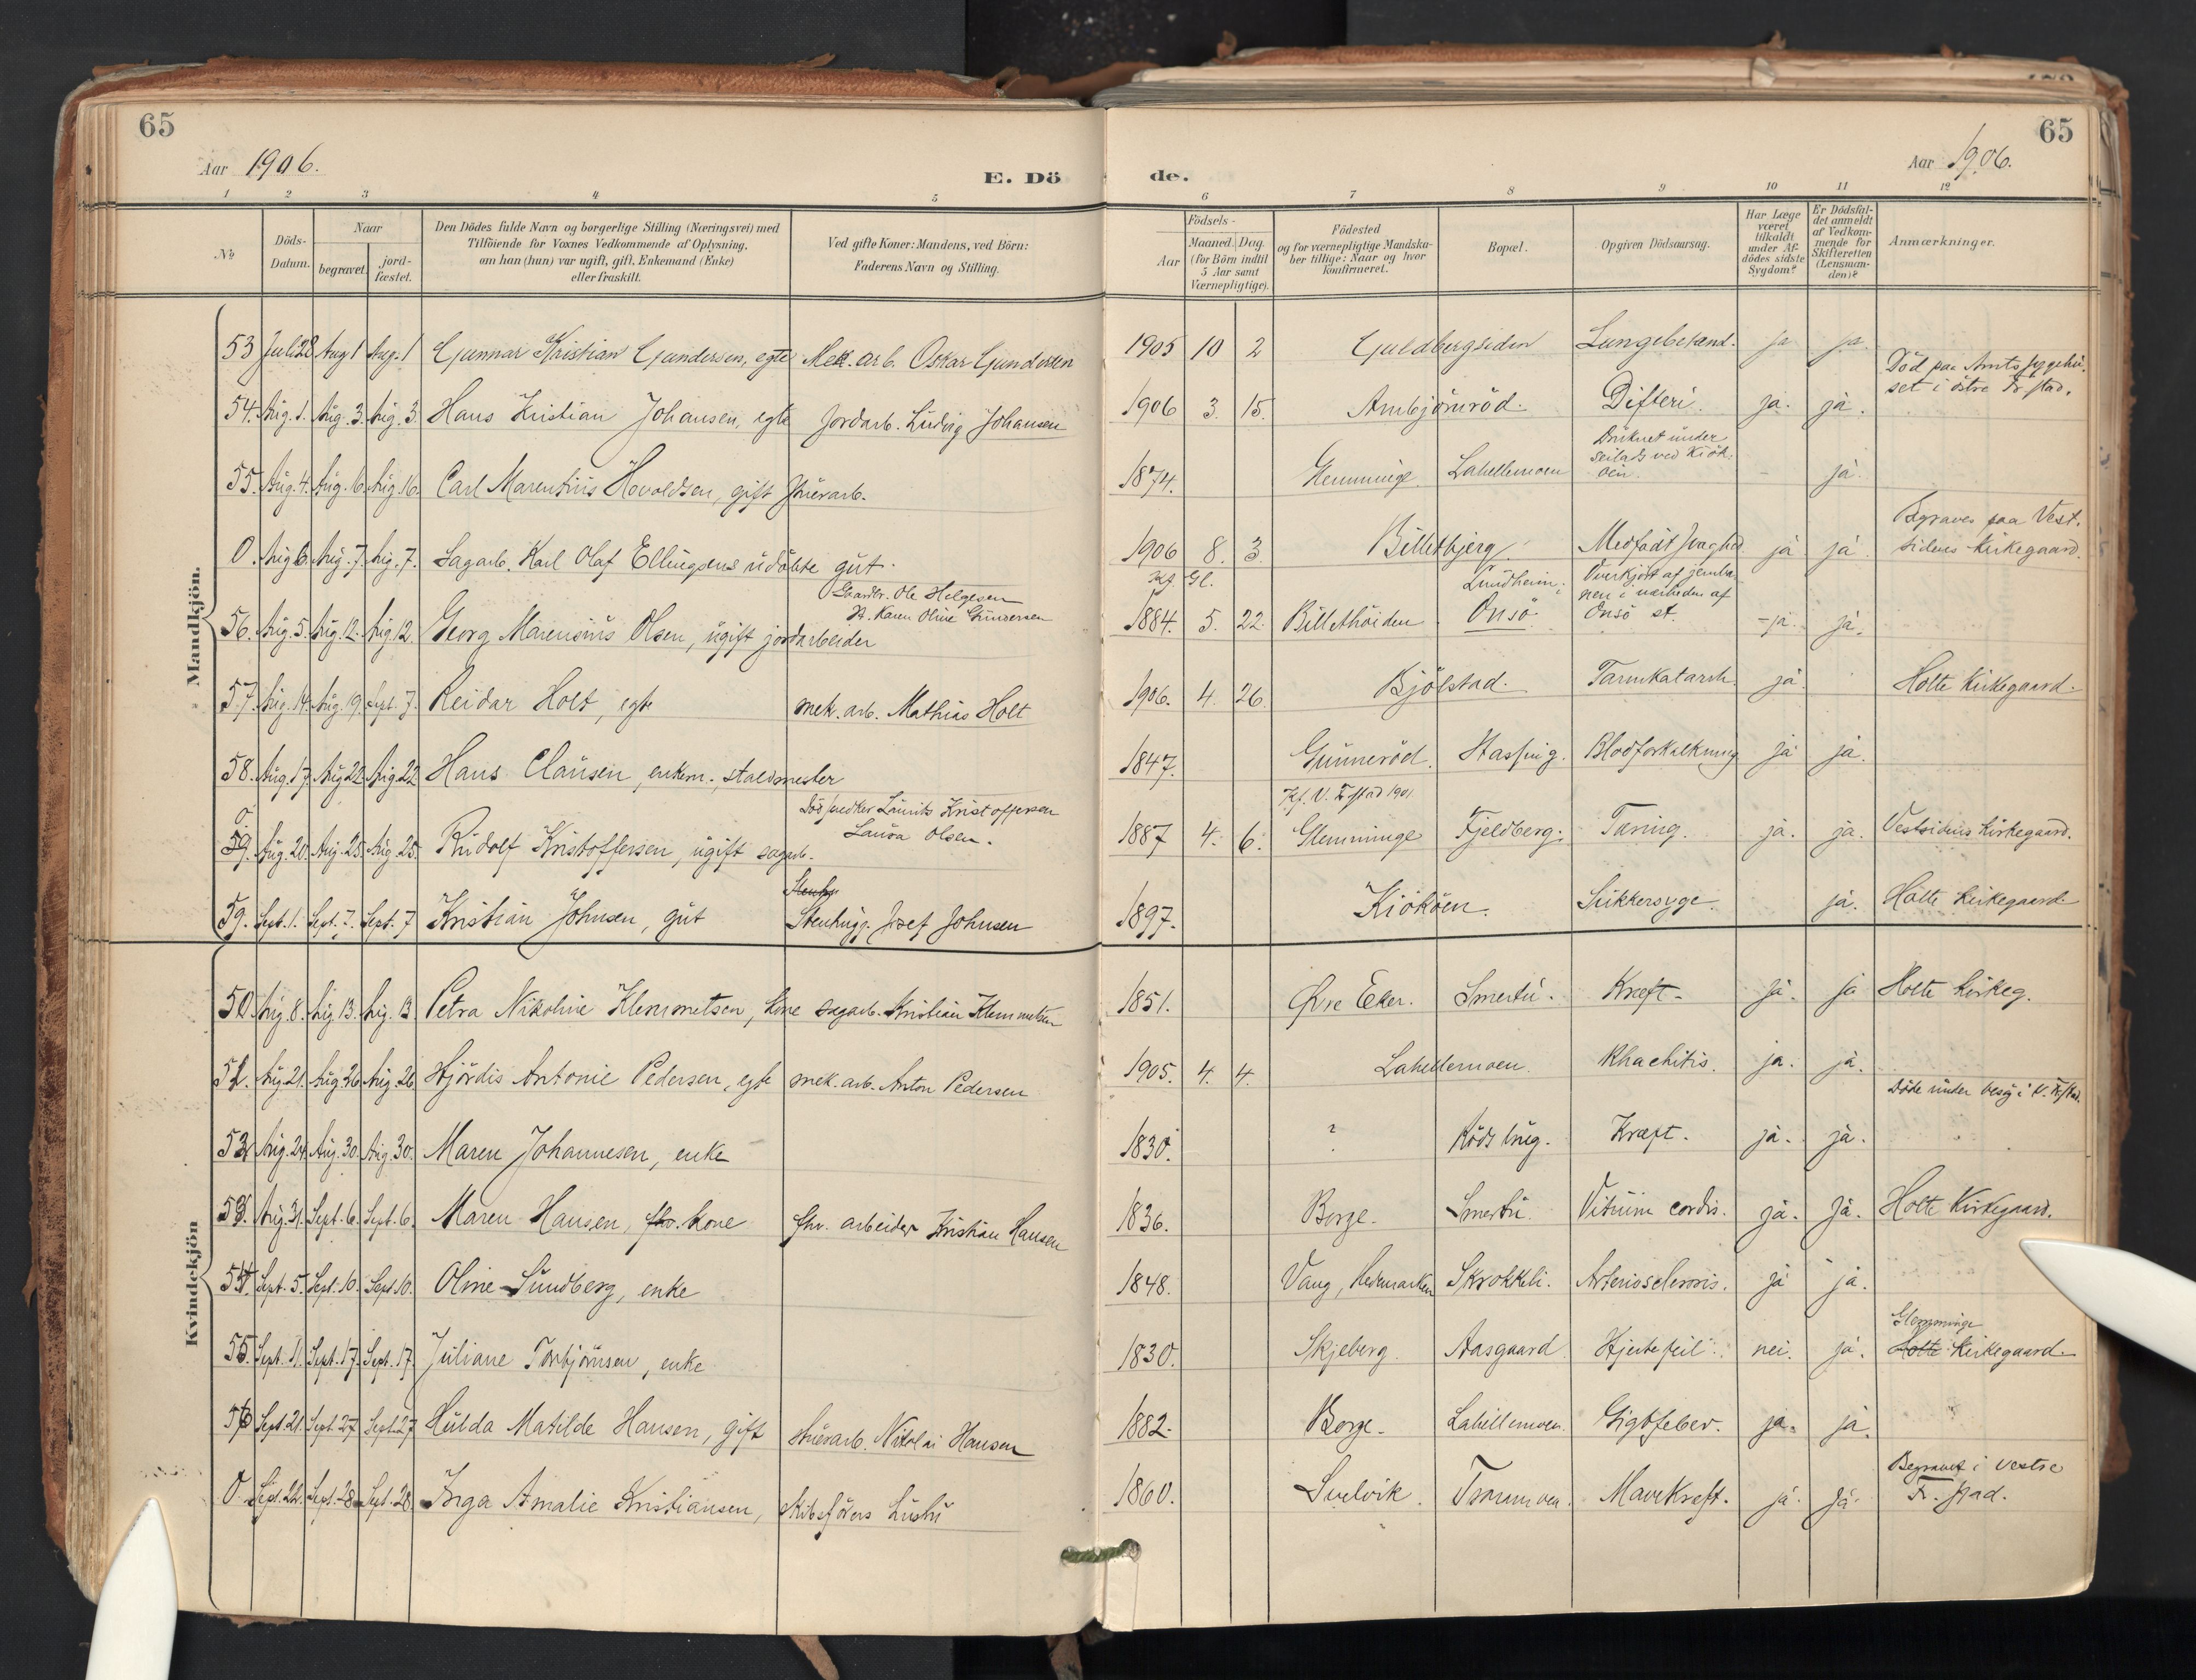 65
65
Aar 1906.
E. Dö
de.
Aar 1906.
1 2 3 4 5 6 7 8 9 10 11 12
No
Döds-
Datum.
Naar
begravet.
jord-
fæstet.
Den Dödes fulde Navn og borgerlige Stilling (Næringsvei) med
Tilföiende for Voxnes Vedkommende af Oplysning,
om han (hun) var ugift, gift, Enkemand (Enke)
eller fraskilt.
Ved gifte Koner: Mandens, ved Börn:
Faderens Navn og Stilling.
Födsels-
Aar
Maaned. Dag.
(for Börn indtil
5 Aar samt
Værnepligtige).
Födested
og for værnepligtige Mandska-
ber tillige: Naar og hvor
konfirmeret.
Bopæl.
Opgiven Dödsaarsag.
Har Læge
været
tilkaldt
under Af-
dödes sidste
Sygdom?
Er Dödsfal-
det anmeldt
af Vedkom-
mende for
Skifteretten
(Lensman-
den)?
Anmærkninger.
Mandkjön.
53 Juli 28 Aug 1 Aug. 1 Gunnar Kristian Gundersen, egte Mek. arb. Oskar Gundersen 1905 10 2 Guldbergsiden Lungebetænd. ja ja
Död paa Amtssygehu-
set i östre Fr.stad.
54. Aug. 1. Aug. 3. Aug. 3. Hans Kristian Johansen, egte Jordarb. Ludvig Johansen 1906 3. 15. Ambjörnröd. Difteri. ja. ja.
Druknet under
seilads ved Kjök-
öen.
55. Aug. 4. Aug. 16. Aug. 16. Carl Marentius Hovoldsen, gift Stuerarb. 1874. Glemminge. Lahellemoen - ja.
Begraves paa Vest-
sidens Kirkegaard.
0. Aug 6. Aug. 7. Aug. 7. Sagarb. Karl Olaf Ellingsens udöbte gut. 1906 8. 3. Billetbjerg Medfödt Svaghed ja ja.
Gaardbr. Ole Helgesen
H. Karen Oline Gundersen
Kf. Gl.
Lundheim;
Overkjört af jernba-
nen i nærheden af
Onsö st.
56. Aug. 5. Aug. 12. Aug 12. Georg Marensius Olsen, ugift jordarbeider 1884. 5. 22. Billethöiden Onsö -ja. ja.
57. Aug. 14. Aug. 19. Sept. 7. Reidar Holt, egte mek. arb. Mathias Holt 1906. 4. 26. Bjölstad. Tarmkatarrh. ja. Holte Kirkegaard.
58. Aug. 17. Aug 22. Aug. 22 Hans Clausen, enkem., staldmester 1847. Gunneröd. Hassing. Blodforkalkning ja ja.
Död snedker Laurits Kristoffersen
Laura Olsen.
Kf. V. Fr.stad 1901
0
59. Aug. 20. Aug. 25. Aug. 25. Rudolf Kristoffersen, ugift sagarb. 1887 4. 6. Glemminge Fjeldberg. Tæring. ja. ja. Vestsidens Kirkegaard.
59. Sept. 1. Sept. 7. Sept. 7 Kristian Johnsen, gut Stenhugg. Josef Johnsen 1897. Kjököen. Sukkersyge. ja. Holte Kirkegaard.
Kvindekjön
50. Aug. 8. Aug. 13. Aug. 13 Petra Nikoline Klemmetsen, kone sagarb. Kristian Klemmetsen 1851. Övre Eker. Smertu. Kræft. ja. ja Holte Kirkeg.
51. Aug. 21. Aug 26 Aug. 26 Hjördis Antonie Pedersen, egte mek. arb. Anton Pedersen 1905. 4. 4. Lahellemoen. Rhachitis. ja. ja.
Döde under besög i V. Fr.stad.
52 Aug. 24. Aug. 30. Aug. 30. Maren Johannesen, enke 1830. ? Röds brug. Kræft. ja. ja.
53. Aug. 31. Sept. 6. Sept. 6. Maren Hansen, fhv. kone fhv. arbeider Kristian Hansen 1836. Borge. Smertu. Vitium cordis. ja. Ja. Holte Kirkegaard.
54. Sept. 5. Sept. 10. Sept. 10. Oline Sundberg, enke 1848. Vang, Hedemarken Skrokkeli. Arteriosclerosis. ja ja.
Glemminge
55. Sept. 11. Sept. 17. Sept. 17. Juliane Torbjörnsen, enke 1830. Skjeberg. Aasgaard Hjertefeil. nei. ja. Holte Kirkegaard.
56 Sept. 21. Sept. 27 Sept. 27 Hulda Matilde Hansen, gift stuerarb. Nikolai Hansen 1882. Borge. Lahellemoen. Gigtfeber. ja. ja.
Begravet i Vestre
Fr. stad.
0. Sept. 22. Sept. 28 Sept. 28. Inga Amalie Kristiansen, skibsförers hustru 1860. Svelvik. Trommoen. Mavekræft. ja. ja.